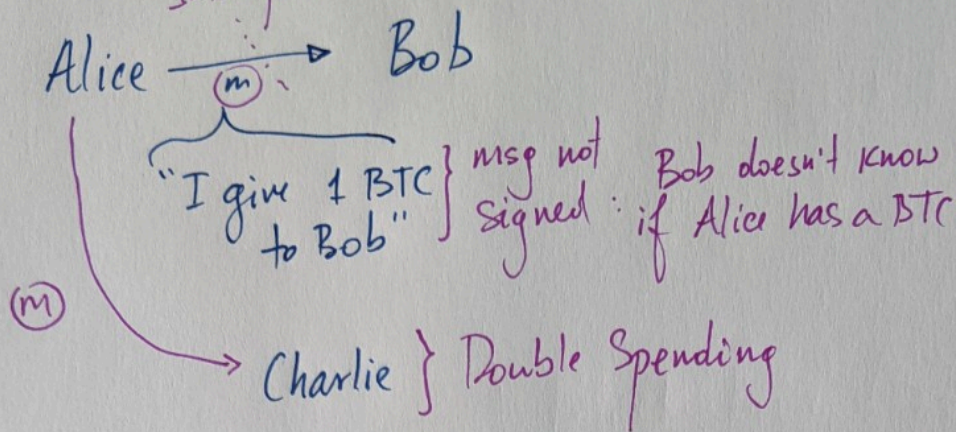 Alice → Bob
m
"I give 1 BTC
to Bob"
msg not
signed :
Bob doesn't know
if Alice has a BTC
m
Charlie } Double Spending